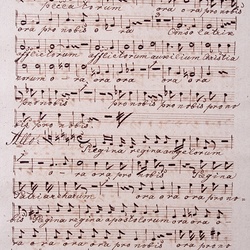 peccatorum ora ora pro nobis
ora pro nobis o ra Consolatrix
afflictorum afflictorum auxilium Christia
norum o ra ora ora ora
pro nobis pro nobis pro nobis pro no
bis pro nobis.
Alto. Regina regina Angelorum
o ra ora ora Regina
Patriarcharum ora ora ora pro no
bis Regina regina apostolorum ora ora
ora ora ora ora pro nobis ora pro nobis